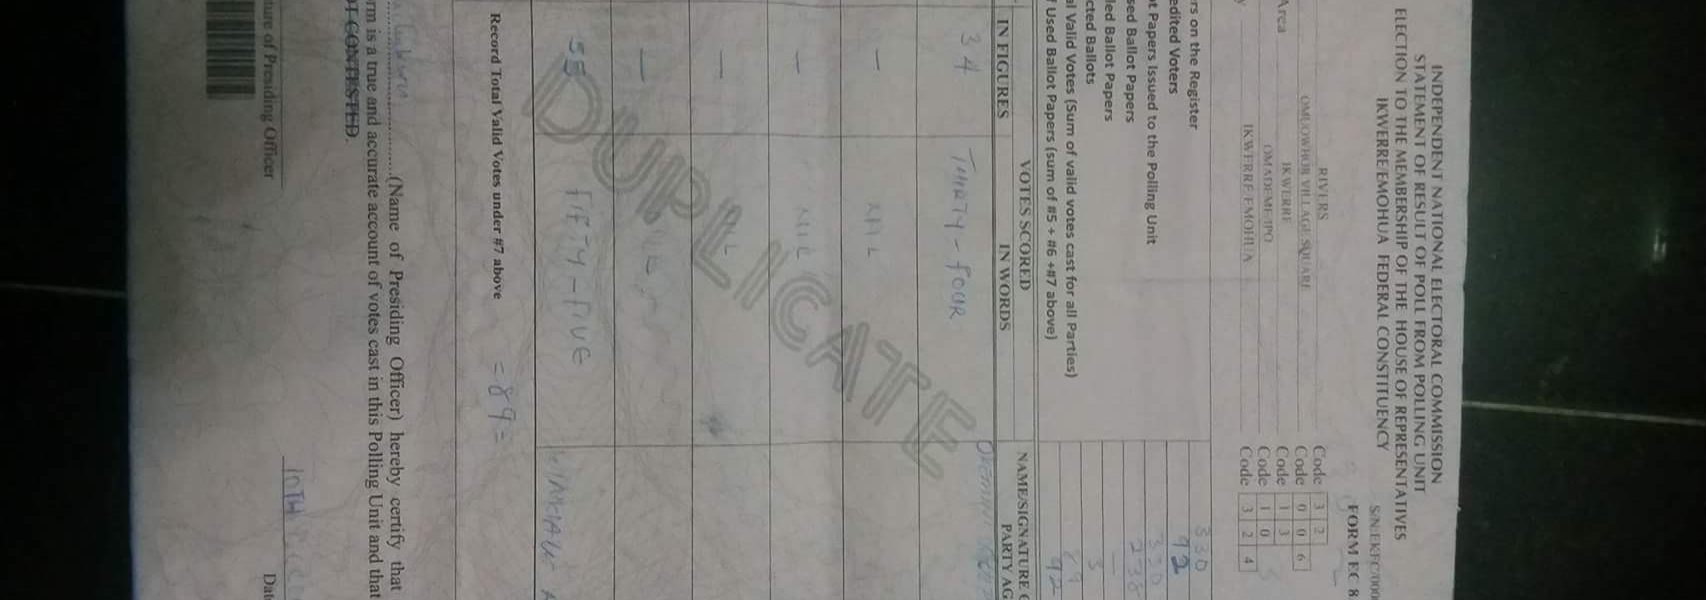 INDEPENDENT NATIONAL ELECTORAL COMMISSION
STATEMENT OF RESULT OF POLL FROM POLLING UNIT
ELECTION TO THE MEMBERSHIP OF THE HOUSE OF REPRESENTATIVES
IKWERRE/EMOHUA FEDERAL CONSTITUENCY
FORM EC 8
RIVERS Code 3 2
OMUOWHOR VILLAGE SQUARE Code 0 0 6
Area IKWERRE Code 1 3
OMADEME/IPO Code 1 0
y IKWERRE EMOHUA Code 3 2 4
rs on the Register 330
edited Voters 92
t Papers Issued to the Polling Unit 330
sed Ballot Papers 238
led Ballot Papers —
cted Ballots 3
al Valid Votes (Sum of valid votes cast for all Parties)
f Used Ballot Papers (sum of #5 + #6 +#7 above) 92
VOTES SCORED
IN FIGURES IN WORDS
NAME/SIGNATURE
PARTY AG
34 THIRTY-FOUR
— NIL
— NIL
—
—
55 FIFTY-FIVE
DUPLICATE
Record Total Valid Votes under #7 above =89=
(Name of Presiding Officer) hereby certify that
rm is a true and accurate account of votes cast in this Polling Unit and that
OT CONTESTED.
10TH
ture of Presiding Officer Date